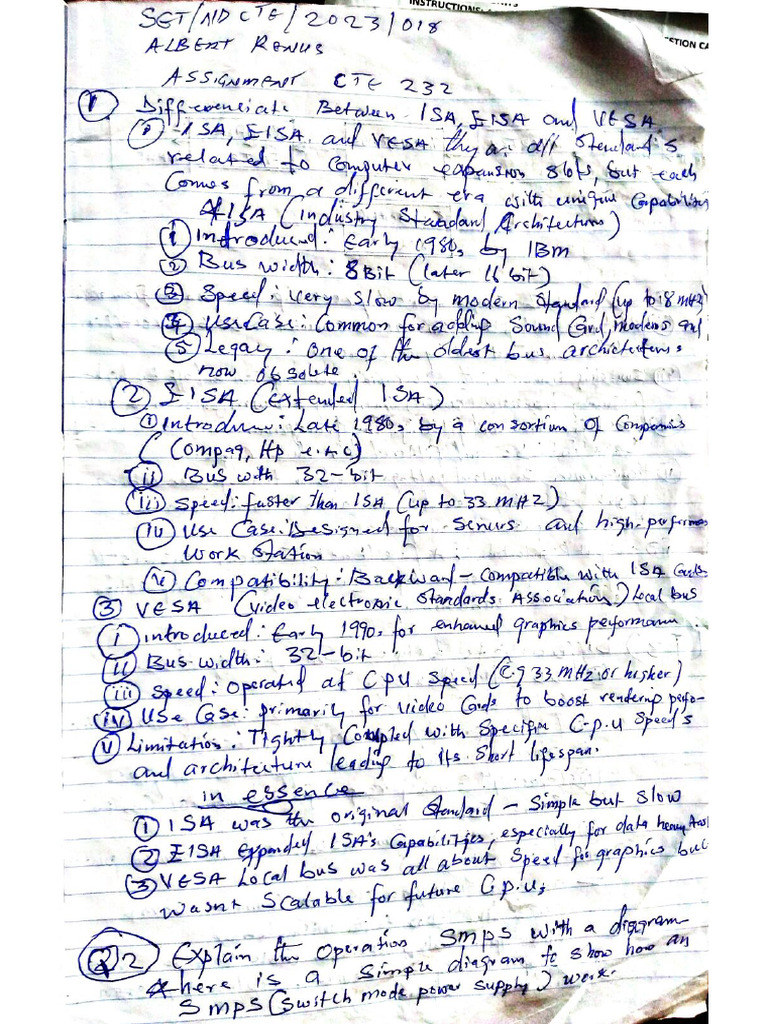 INSTRUCTIONS:
STION CA
SET/NDCTE/2023/018
ALBERT RENUS
ASSIGNMENT CTE 232
① Differenciate Between ISA, EISA and VESA
ISA, EISA, and VESA they are dff Standard's
related to computer expansion slots, but each
Comes from a different era with unique Capabilities
ISA (Industry Standard Architecture)
① Introduced: Early 1980s by IBm
② Bus width: 8Bit (later 16 bit)
③ Speed: very slow by modern standard (up to 8 mHz)
④ Use Case: Common for adding Sound Card, modems and
⑤ Legacy: one of the oldest bus architectures
now obsolete.
② EISA (Extended ISA)
① Introduce: Late 1980s by a consortium of Companies
(Compaq, Hp e.t.c)
ii Bus with 32-bit
iii Speed: faster than ISA (up to 33 mHz)
iv Use Case: Designed for Servers and high-perform
Work Station
v Compatibility: Backward-Compatible with ISA Cards
③ VESA (Video electronic Standards Association) Local bus
i Introduced: Early 1990s for enhanced graphics performann
ii Bus width: 32-bit
iii Speed: Operated at CPU Speed (e.g 33 mHz or higher)
iv Use Case: primarily for video Cards to boost rendering perfo-
v Limitation: Tightly Coupled with Specific C.p.u Speed's
and architecture leading to its Short lifespan.
in essence
① ISA was the original Standard - Simple but slow
② EISA Expanded ISA's Capabilities, especially for data heavy
③ VESA Local bus was all about Speed for graphics but
wasnt Scalable for future C.p.u,s
Q2 Explain the operation SMPS with a diagram
here is a Simple diagram to show how an
SMPS (Switch mode power supply) work.